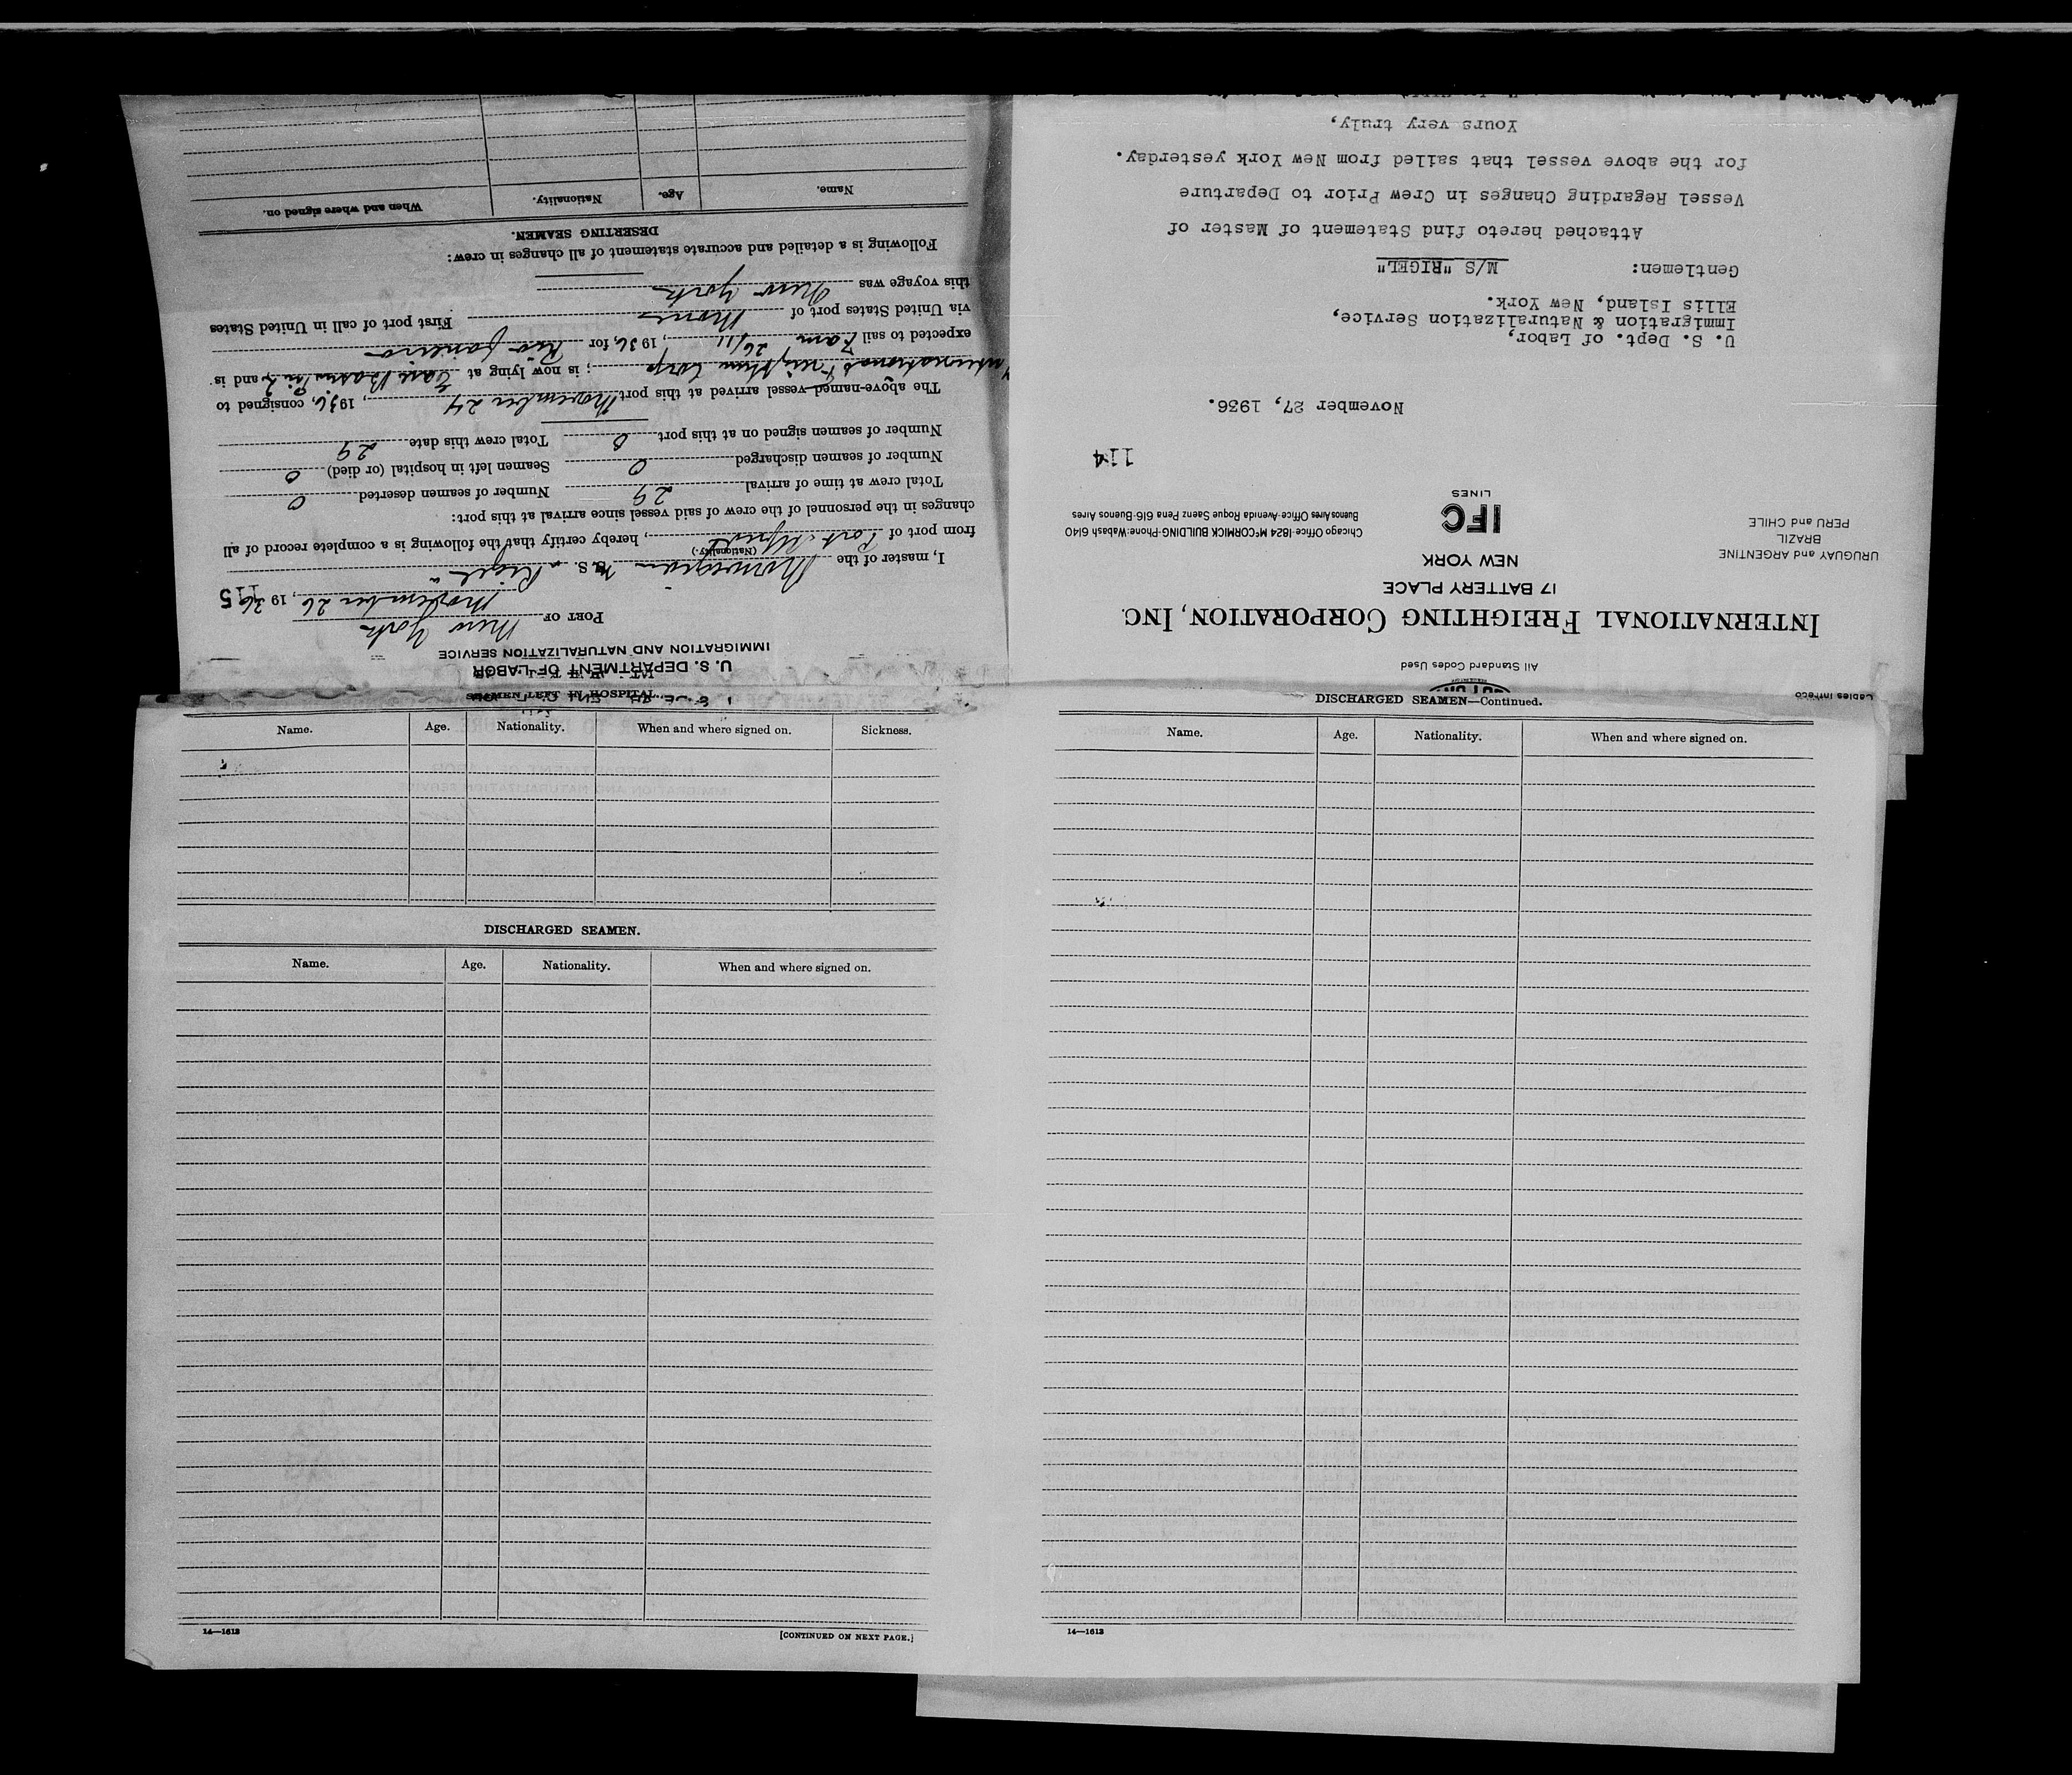 Cables Intfreco
All Standard Codes Used
INTERNATIONAL FREIGHTING CORPORATION, INC.
17 BATTERY PLACE
NEW YORK
URUGUAY and ARGENTINE
BRAZIL
PERU and CHILE
IFC
LINES
Chicago Office-1824 McCORMICK BUILDING-Phone: Wabash 6140
Buenos Aires Office-Avenida Roque Saenz Pena 616-Buenos Aires
114
November 27, 1936.
U. S. Dept. of Labor,
Immigration & Naturalization Service,
Ellis Island, New York.
Gentlemen: M/S "RIGEL"
Attached hereto find Statement of Master of
Vessel Regarding Changes in Crew Prior to Departure
for the above vessel that sailed from New York yesterday.
Yours very truly,
U. S. DEPARTMENT OF LABOR
IMMIGRATION AND NATURALIZATION SERVICE
PORT OF New York
November 26, 1936
115
I, master of the Norwegian M.S. "Rigel"
(Nationality.)
from port of Port Alfred, hereby certify that the following is a complete record of all
changes in the personnel of the crew of said vessel since arrival at this port:
Total crew at time of arrival 29 Number of seamen deserted 0
Number of seamen discharged 0 Seamen left in hospital (or died) 0
Number of seamen signed on at this port 0 Total crew this date 29
The above-named vessel arrived at this port November 24, 1936, consigned to
International Freighting Corp; is now lying at and is
expected to sail 7 am 26/11, 1936, for Rio Janeiro
via United States port of None First port of call in United States
this voyage was New York
Following is a detailed and accurate statement of all changes in crew:
DESERTING SEAMEN.
Name. Age. Nationality. When and where signed on.
SEAMEN LEFT IN HOSPITAL
Name. Age. Nationality. When and where signed on. Sickness.
DISCHARGED SEAMEN.
Name. Age. Nationality. When and where signed on.
14—1613
[CONTINUED ON NEXT PAGE.]
DISCHARGED SEAMEN—Continued.
Name. Age. Nationality. When and where signed on.
14—1613